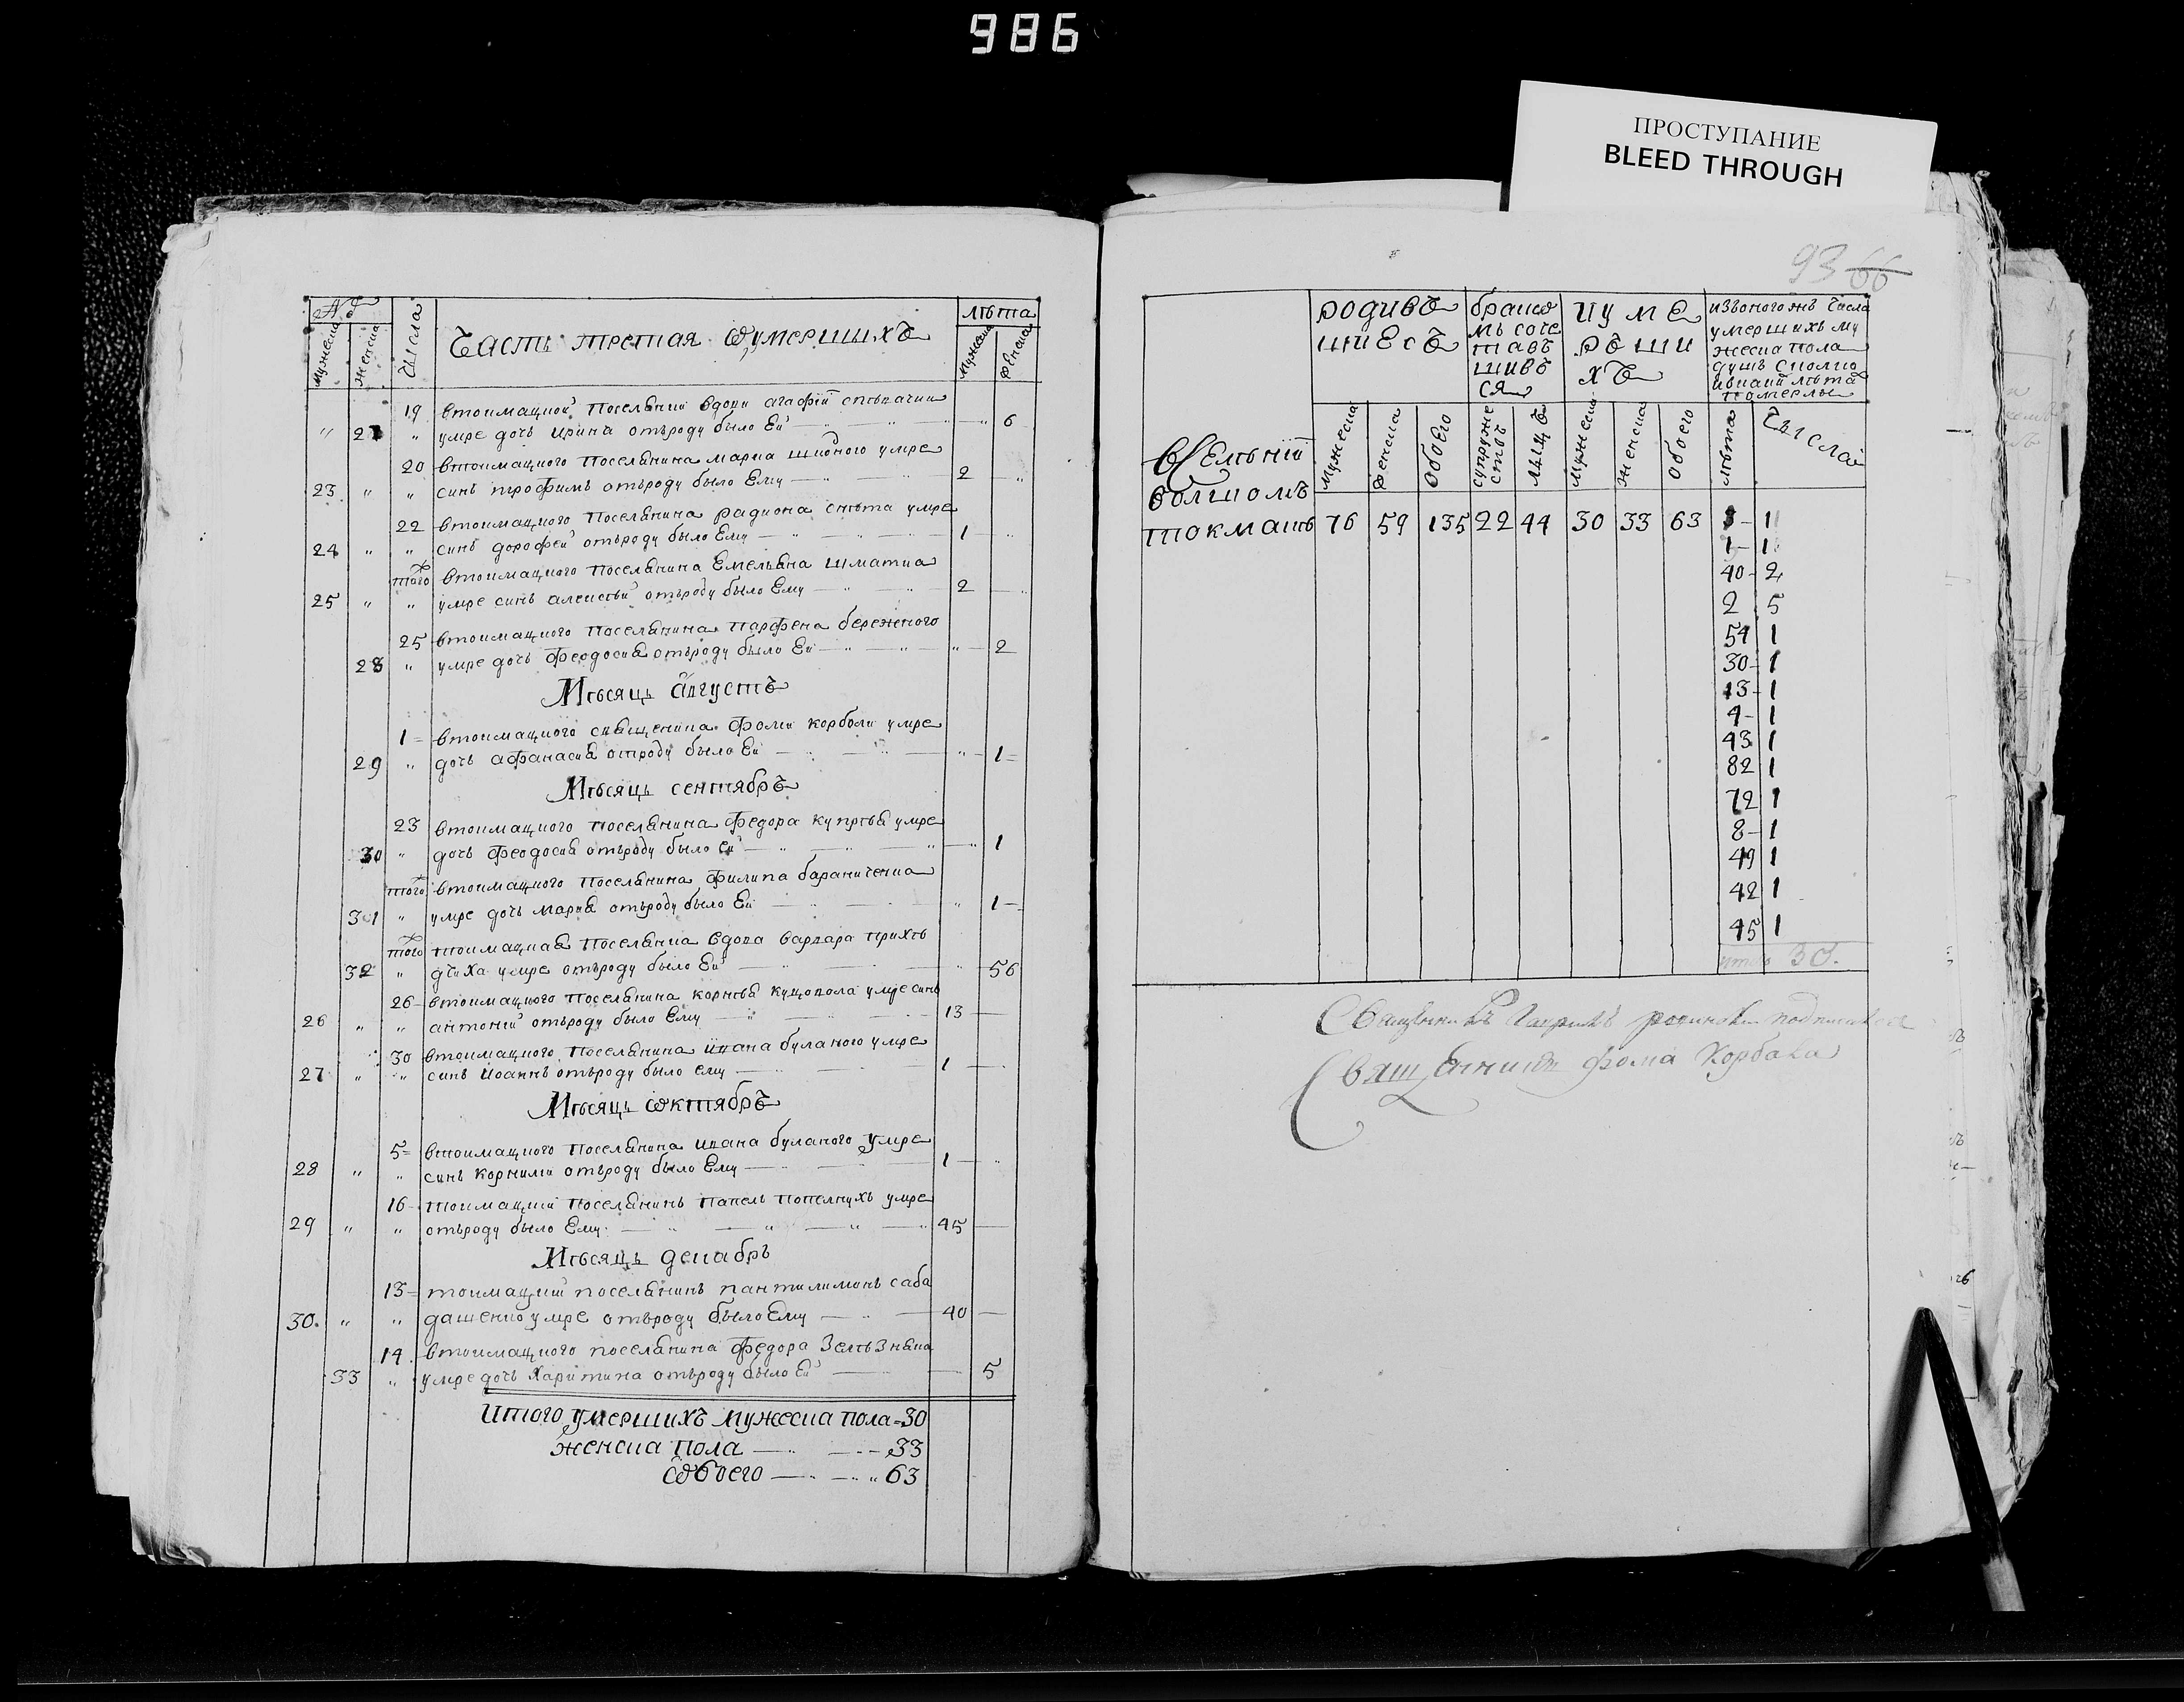 986
ПРОСТУПАНИЕ
BLEED THROUGH
№
мужеска
женска
Числа
Часть третая ѡумершыхъ
лѣта
мужеска
женска
19 втокмацкой поселянки вдови агафїи
" 27 " умре дочь ирина отъроду было Ей " 6
20 втокмацкого поселянина марка умре
23 " " синъ трофимъ отъроду было Ему 2 "
22 втокмацкого поселянина радиона умре
24 " " синъ дорофей отъроду было Ему 1 "
того втокмацкого поселянина Емельяна шматка
25 " " умре синъ алексѣй отъроду было Ему 2 "
25 втокмацкого поселянина парфена бережного
28 " умре дочь феодосия отъроду было Ей " 2
Мѣсяць августъ
1 втокмацкого священика фоми корболи умре
29 " дочь афанасия отроду было Ей " 1
Мѣсяць сентябръ
23 втокмацкого поселянина федора купрѣя умре
30 " дочь феодосия отъроду было ей " 1
того втокмацкого поселянина филипа бараниченка
31 " умре дочь мария отъроду было Ей " 1
того токмацкая поселянка вдова варвара прихѣ
32 " дчиха умре отъроду было Ей " 56
26 втокмацкого поселянина корнѣя кущовола умре синъ
26 " " антоній отъроду было Ему 13
30 втокмацкого поселянина ивана буланого умре
27 " " синъ Иоаннъ отъроду было ему 1
Мѣсяць ѡктябръ
5 втокмацкого поселянина ивана буланого умре
28 " " синъ корнилий отъроду было Ему 1 "
16 токмацкий поселянинъ павелъ попелнухъ умре
29 " " отъроду было Ему 45
Мѣсяць декабръ
13 токмацкий поселянинъ пантилимонъ саба
30. " " дашенко умре отъроду было Ему 40
14 втокмацкого поселянина федора Зелѣзняка
33 " умре дочь Харитина отъроду было Ей 5
Итого умершихъ мужеска пола 30
женска пола 33
ѡбоего 63
93 66
родивъ
шиесъ
бракѡ
мъ соче
тавъ
шивъ
ся
иумЕ
ръши
хъ
изъоногожъ числа
умершихъ му
жеска пола
душъ сколко
лѣта
померлы
мужеска
женска
обоего
супруже
ствъ
лицъ
мужеска
женска
обоего
лѣта
Числа
всЕлѣнїи
болшомъ
токмакѣ 76 59 135 22 44 30 33 63 3 1
1 1
40 2
2 5
54 1
30 1
13 1
4 1
43 1
82 1
72 1
8 1
49 1
42 1
45 1
итого 30.
Священникъ подписался
Священникъ фома Корбала